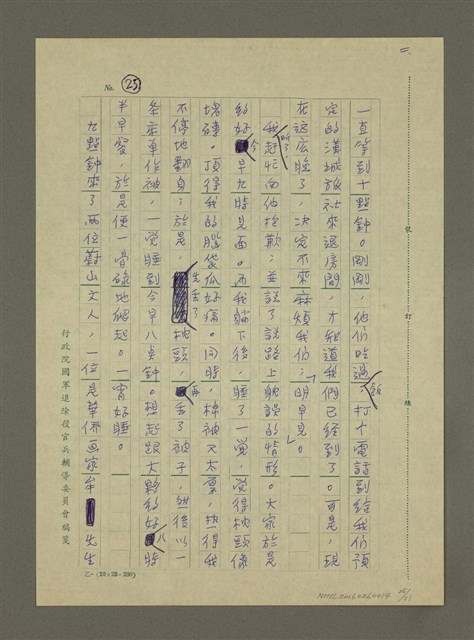 No. 25
一直等到十點鐘。剛剛,他們吃過飯,打个電話到給我們預
定的漢城旅社來退房間,才知道我們已經到了。可是,現
在這麼晚了,決定不來麻煩我們;「明早見」。
我聽了趕忙向他抱歉;並說了說路上躭誤的情形。大家於是
約好今早九時見面。而我躺下後,睡了一覺,覺得枕頭像
塊磚。頂得我的腦袋瓜好痛。同時,棉被又太重,熱得我
不停地翻身;於是,先丟了枕頭,再丟了被子,然後以一
条床單作被,一覺睡到今早八点鐘。想起跟大夥約好八時
半早餐,於是便一骨碌地爬起。一宵好睡。
九點鐘來了兩位蔚山文人,一位是華僑画家牟 先生
行政院國軍退除役官兵輔導委員會稿箋
乙-(20×25=250)
裝
訂
線
NMTL20160260014